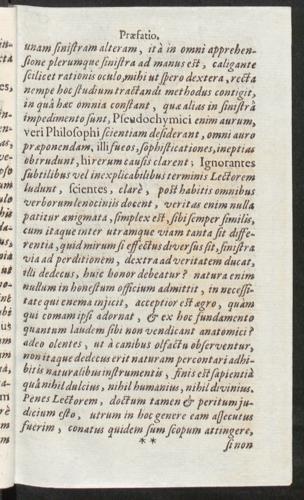 Præfatio,
unam sinistram alteram, ità in omni apprehen-
sione plerumque sinistra ad manus est, caligante
scilicet rationis oculo, mihi ut spero dextera, recta
nempe hoc studium tractandi methodus contigit,
in quâ hæc omnia constant, quæ alias in sinistrâ
impedimento sunt, Pseudochymici enim aurum,
veri Philosophi scientiam desiderant, omni auro
præponendam, illi fucos, sophisticationes, ineptias
obtrudunt, hi rerum causis clarent; Ignorantes
subtilibus vel inexplicabilibus terminis Lectorem
ludunt, scientes, clarè, posthabitis omnibus
verborum lenociniis docent, veritas enim nulla
patitur ænigmata, simplex est, sibi semper similis,
cum itaque inter utramque viam tanta sit diffe-
rentia, quid mirum si effectus diversus sit, sinistra
via ad perditionem, dextra ad veritatem ducat,
illi dedecus, huic honor debeatur? natura enim
nullum in honestum officium admittit, in necessi-
tate qui enema injicit, acceptior est ægro, quàm
qui comam ipsi adornat, & ex hoc fundamento
quantum laudem sibi non vendicant anatomici?
adeo olentes, ut à canibus olfactu observentur,
non itaque dedecus erit naturam percontari adhi-
bitis naturalibus instrumentis, finis est sapientiâ
quâ nihil dulcius, nihil humanius, nihil divinius.
Penes Lectorem, doctum tamen & peritum ju-
dicium esto, utrum in hoc genere eam assecutus
fuerim, conatus quidem sum scopum attingere,
* *
si non